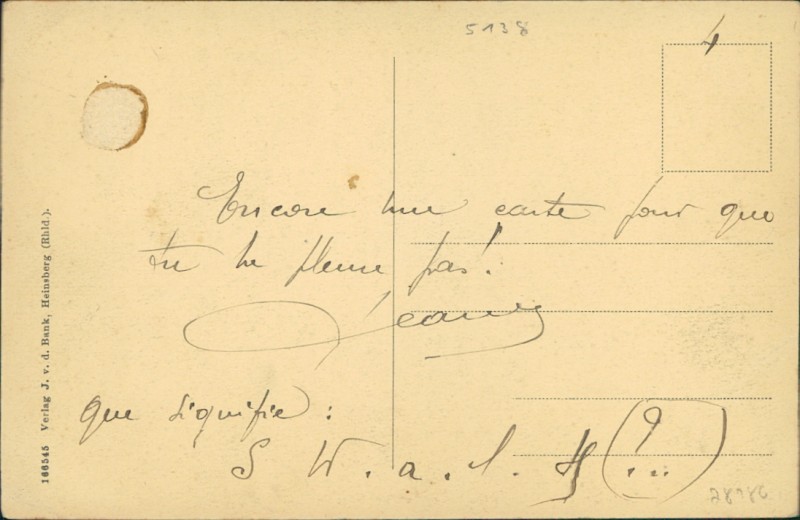 5138
4
Encore une carte pour que
tu ne pleure pas!
que signifie:
S W. a. l. H (?...)
166545 Verlag J. v. d. Bank, Heinsberg (Rhld.).